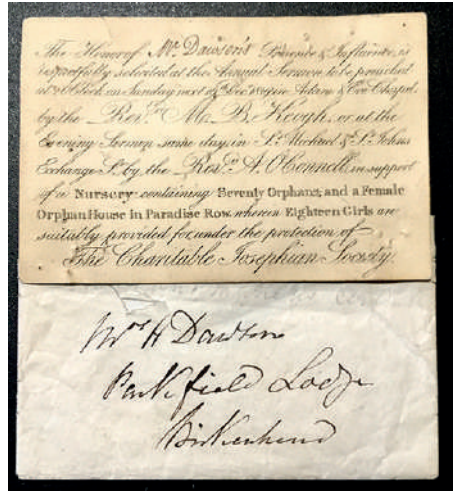 The Honor of Mr. Dawson's Presence & Influence, is
respectfully solicited at the Annual Sermon to be preached
at O'Clock, on Sunday next 9th Decr. Adam & Eve Chapel,
by the Revd. Mr. B. Keogh, or at the
Evening Sermon same day, in St. Michael & St. Johns
Exchange St. by the Revd. A. O'Connell, in support
of a Nursery containing Seventy Orphans, and a Female
Orphan House in Paradise Row, wherein Eighteen Girls are
suitably provided for, under the protection of
The Charitable Josephian Society.
Mrs H Dawson
Parkfield Lodge
Birkenhead